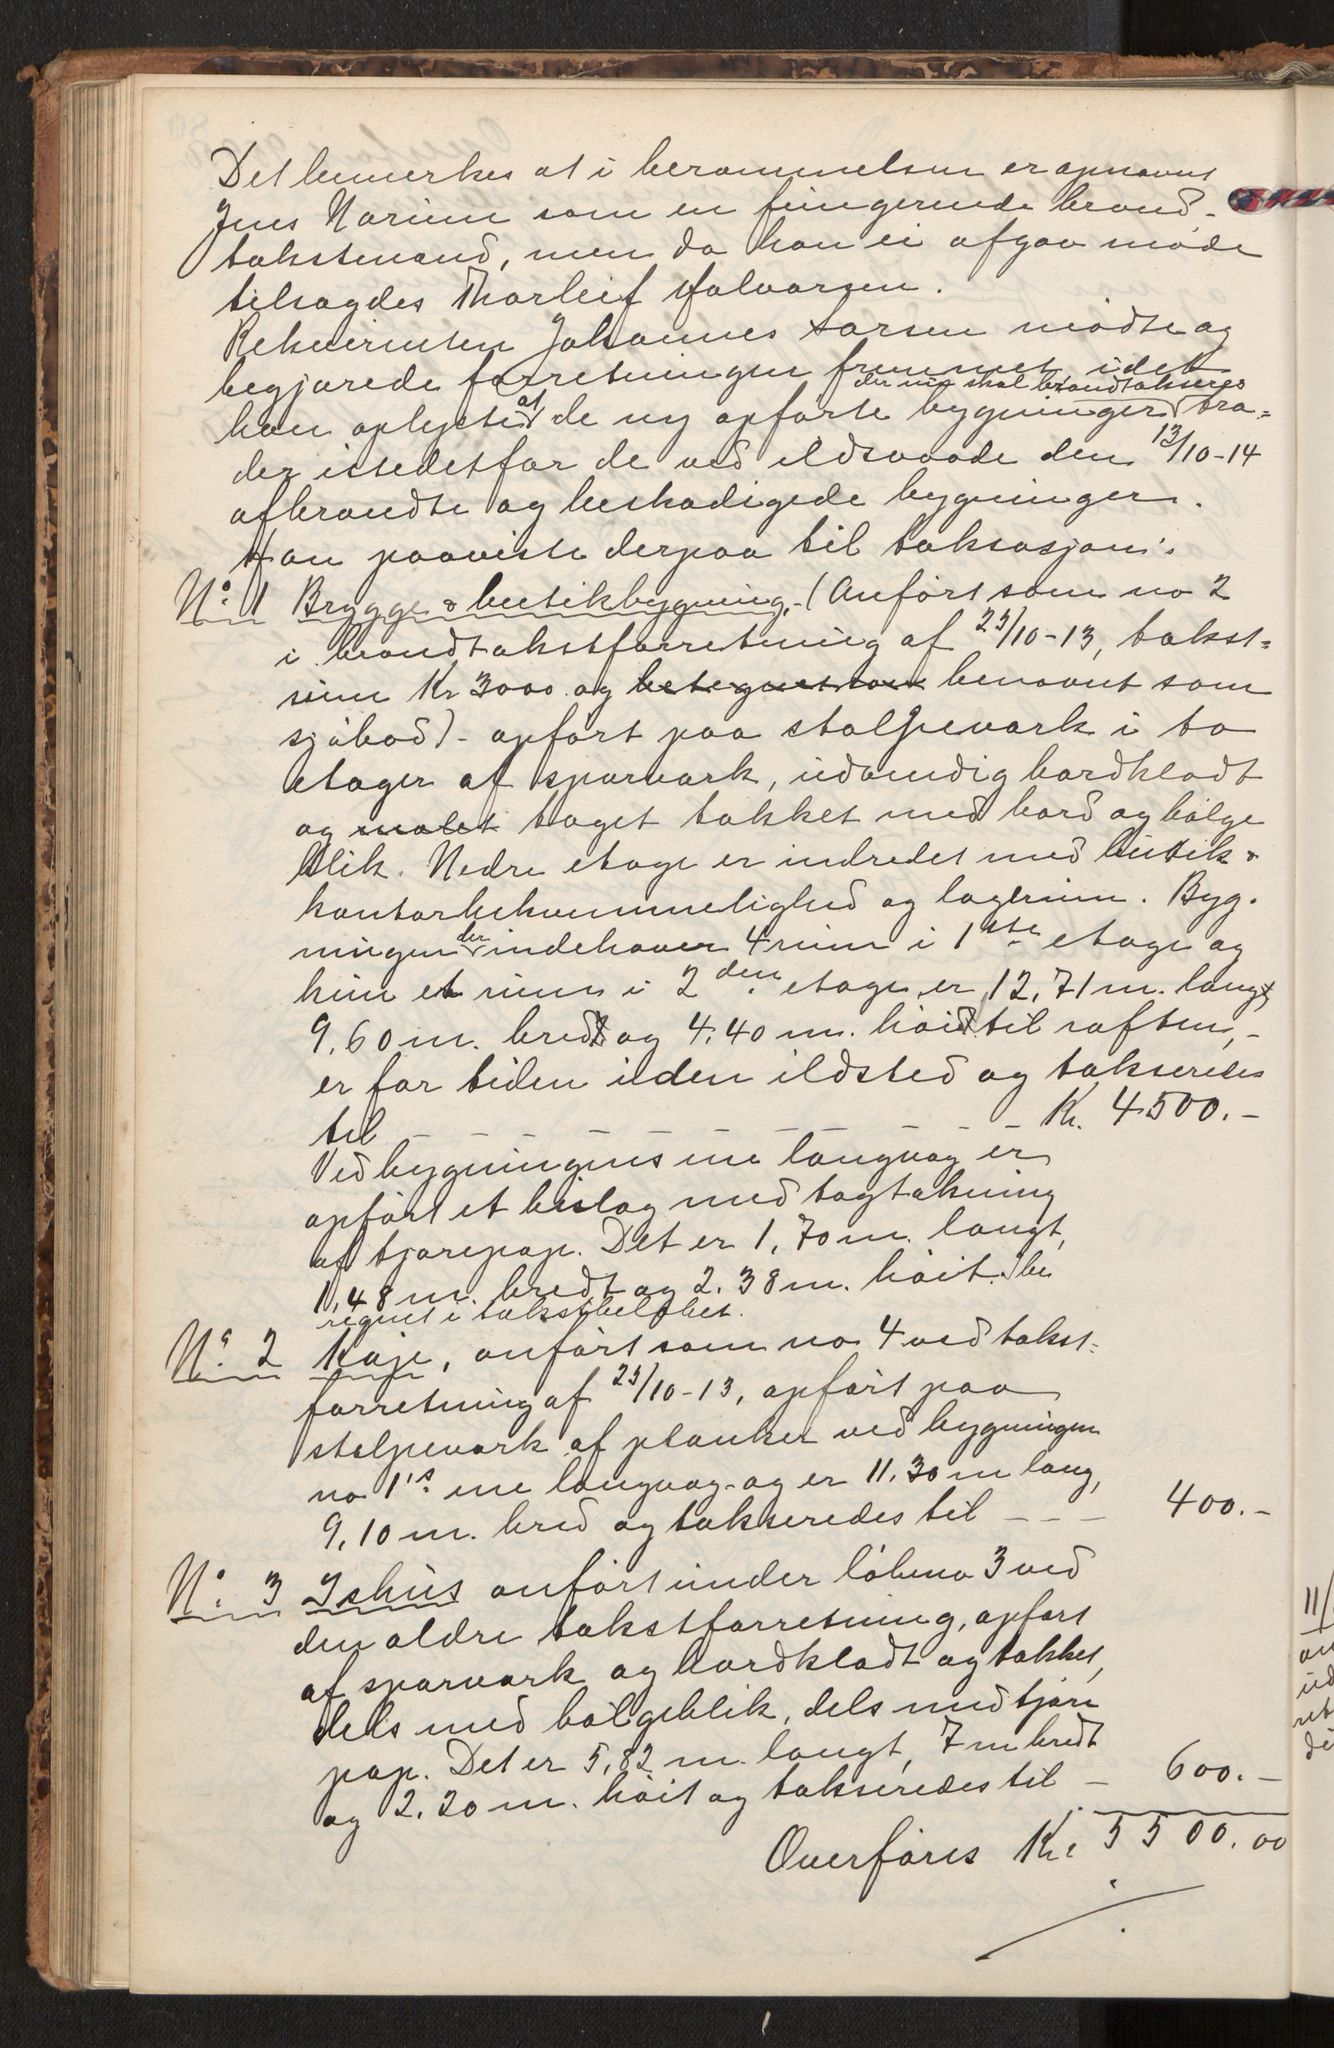 Det bemerkes at i berammelsen er opnævnt
Jens Marinu som en fungerende brand-
takstmand, men da han ei afgav møde
tilsagdes Thorleif Halvorsen.
Rekvirenten Johannes Larsen mødte og
begjærede forretningen fremmet idet
der nu skal brandtakseres
han oplyste at de ny opførte bygninger træ-
der istedetfor de ved ildsvaade den 13/10-14
afbrændte og beskadigede bygninger.
Han paaviste derpaa til taksasjon:
No. 1 Brygge- & butikbygning,- (Anført som no 2
i brandtakstforretning af 23/10-13, takst-
sum Kr 3000 og betegnet som benævnt som
sjøbod) - opført paa stolpeværk i to
etager af sperværk, udvendig bordklædt
og malet taget tækket med bord og bølge
blik. Nedre etage er indredet med butik &
kontorbekvemmelighed og lagerrum. Byg-
ningen der indehaver 4 rum i 1ste etage og
kun et rum i 2den etage, er 12,71 m. lang,
9,60 m. bred og 4,40 m. høi til raften, -
er for tiden uden ildsted og takseredes
til - - - - - - - - - - Kr. 4500.-
Ved bygningens ene langvæg er
opført et bislag med tagtækning
af tjærepap. Det er 1,70 m. langt,
1,48 m. bredt og 2,38 m. høit. Ibe
regnet i takstbeløbet.
No. 2 Kaje, anført som no 4 ved takst-
forretning af 23/10-13, opført paa
stolpeværk af planker ved bygningen
no 1's ene langvæg og er 11,30 m lang,
9,10 m. bred og takseredes til - - - 400.-
No. 3 Ishus anført under løbeno 3 ved
den ældre takstforretning, opført
af sperværk og bordklædt og tækket,
dels med bølgeblik, dels med tjære
pap. Det er 5,82 m. langt, 7 m bredt
og 2,20 m. høit og takseredes til - 600.-
Overføres Kr. 5500.00